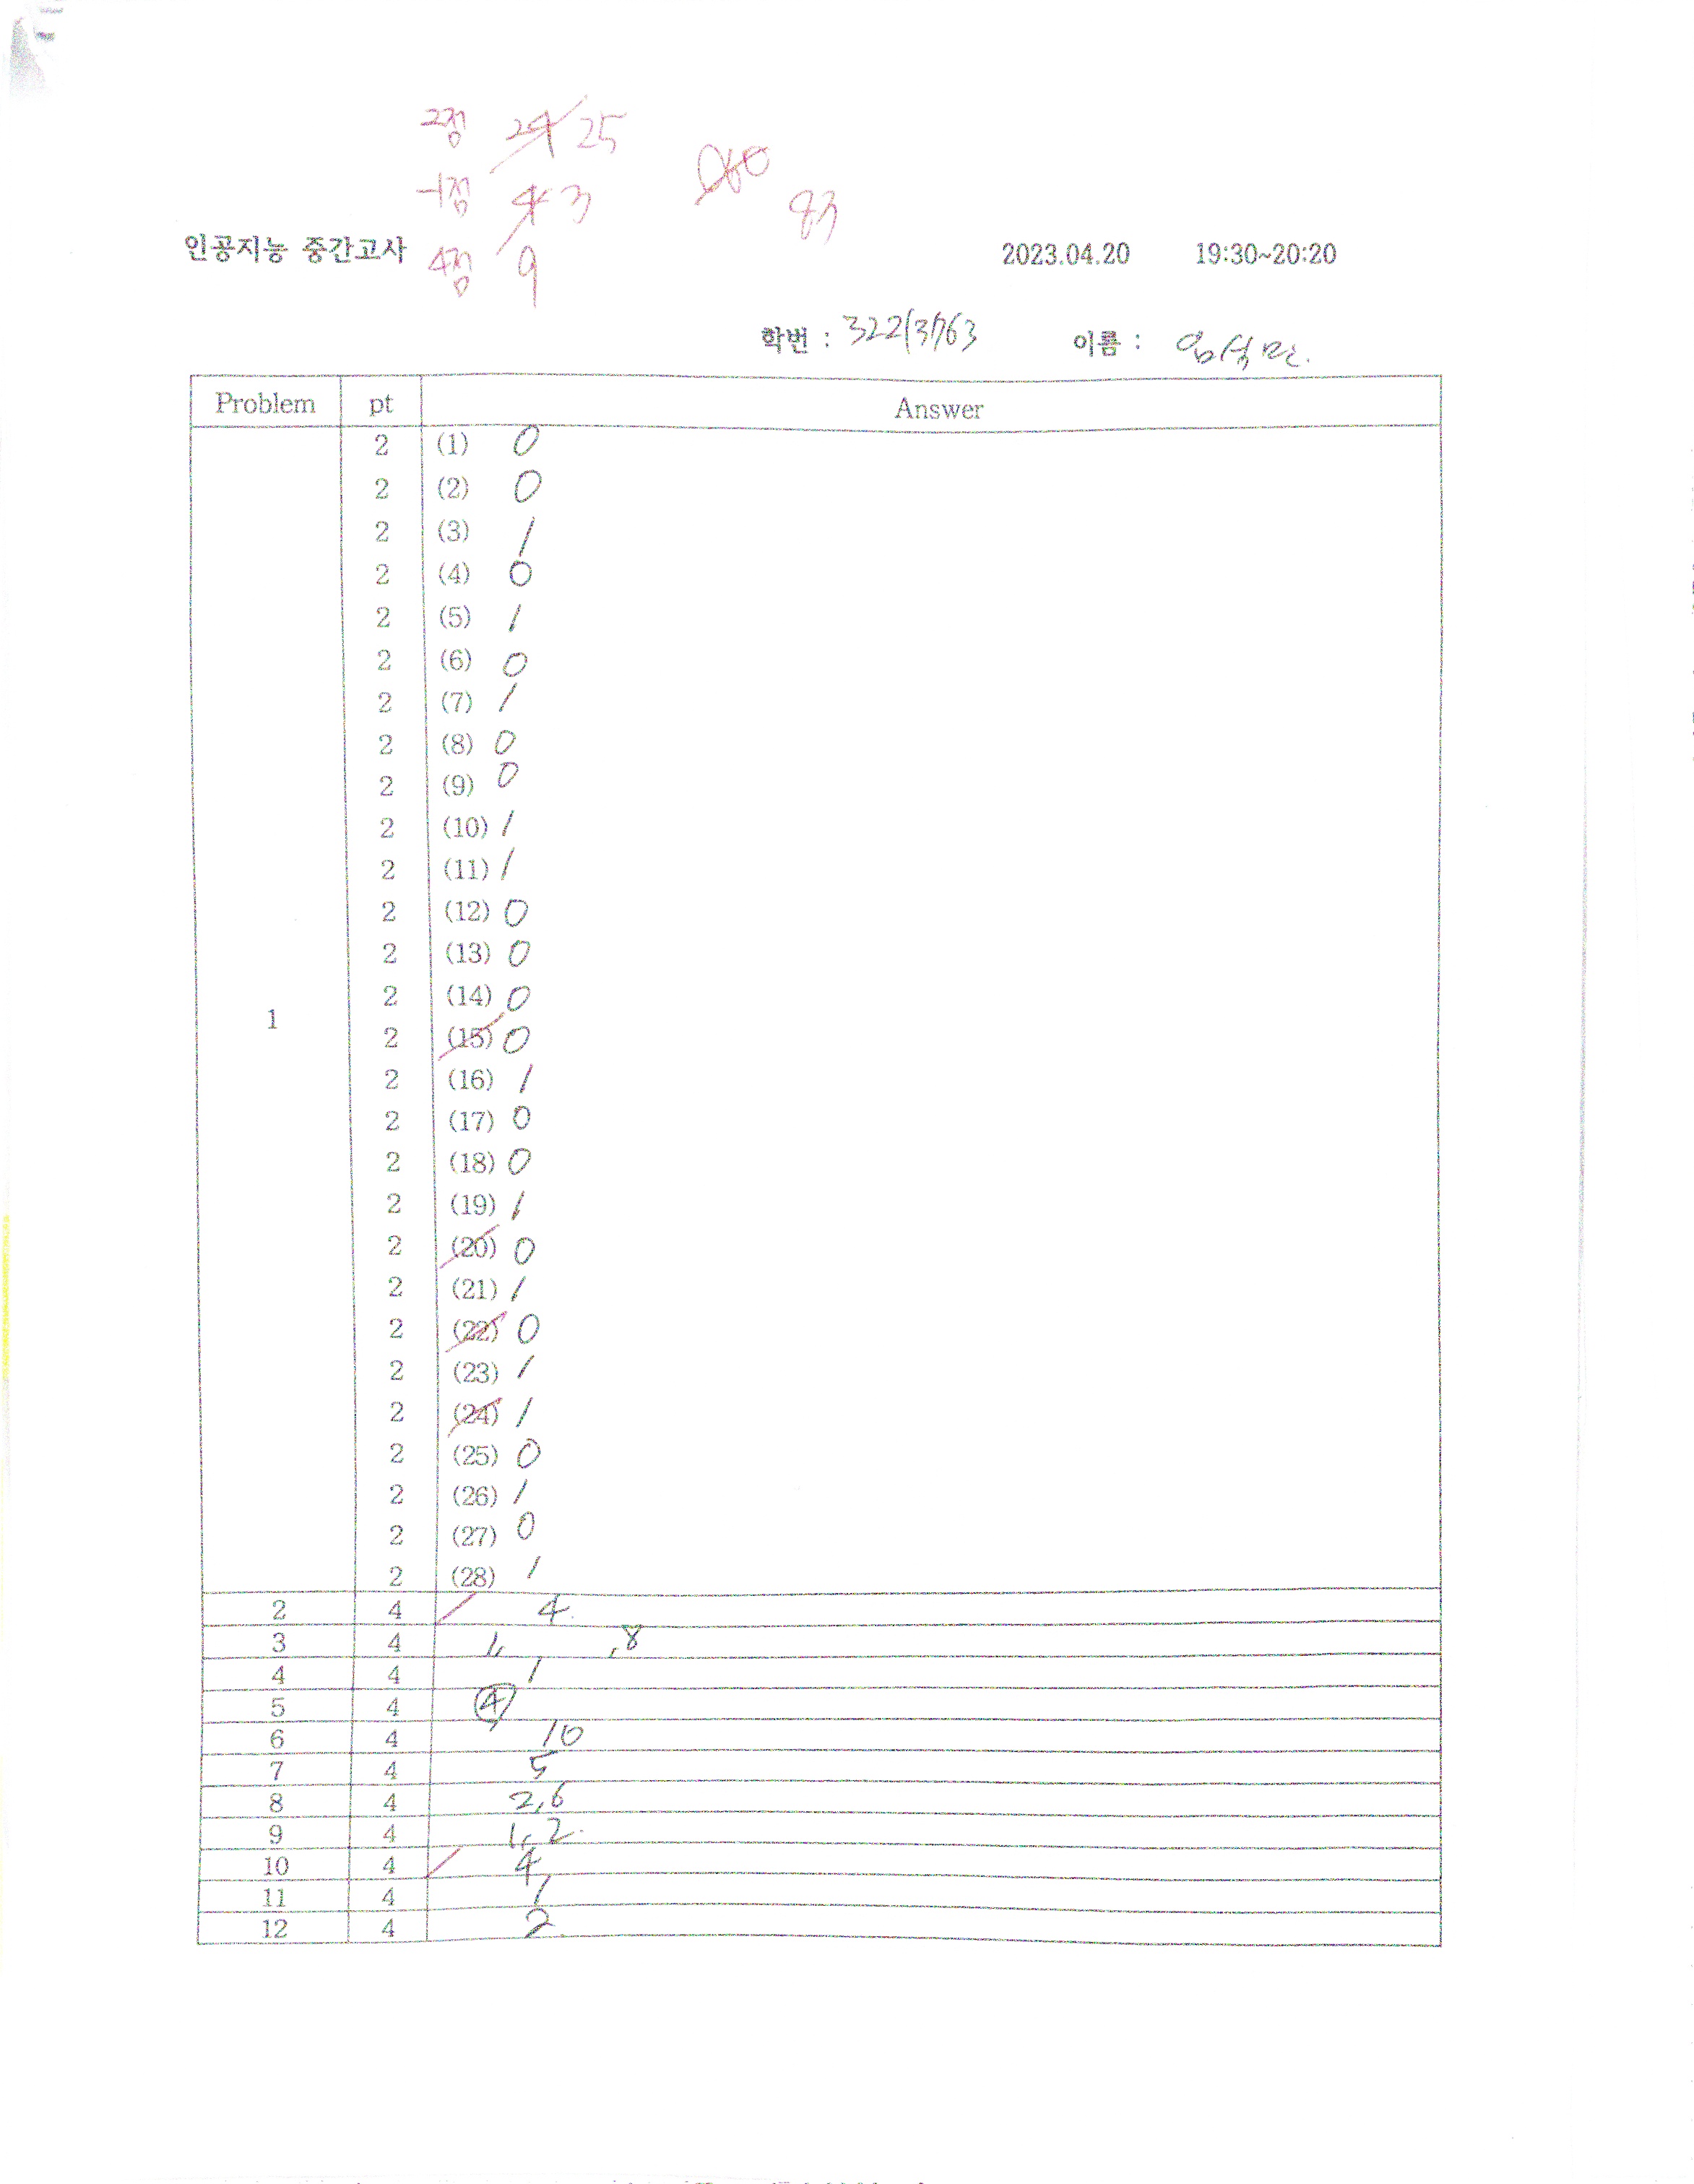 2점 24 25
-1점 4 3
4점 9
83
인공지능 중간고사 2023.04.20 19:30~20:20
학번 : 이름 :
Problem pt Answer
1
2 (1) 0
2 (2) 0
2 (3) 1
2 (4) 0
2 (5) 1
2 (6) 0
2 (7) 1
2 (8) 0
2 (9) 0
2 (10) 1
2 (11) 1
2 (12) 0
2 (13) 0
2 (14) 0
2 (15) 0
2 (16) 1
2 (17) 0
2 (18) 0
2 (19) 1
2 (20) 0
2 (21) 1
2 (22) 0
2 (23) 1
2 (24) 1
2 (25) 0
2 (26) 1
2 (27) 0
2 (28) 1
2 4 4
3 4 1, ,8
4 4 1
5 4 4
6 4 10
7 4 5
8 4 2,6
9 4 1, 2
10 4 4
11 4 1
12 4 2